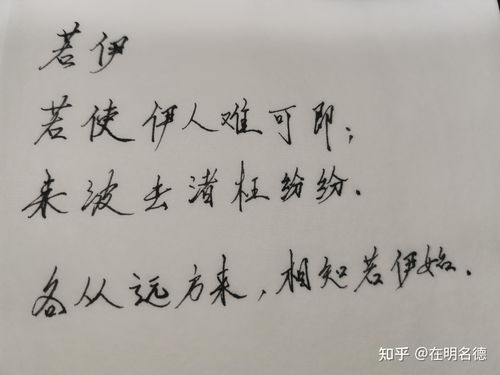 若伊
若使伊人难可即；
来波去渚枉纷纷.
各从远方来，相知若伊始.
知乎 @在明名德